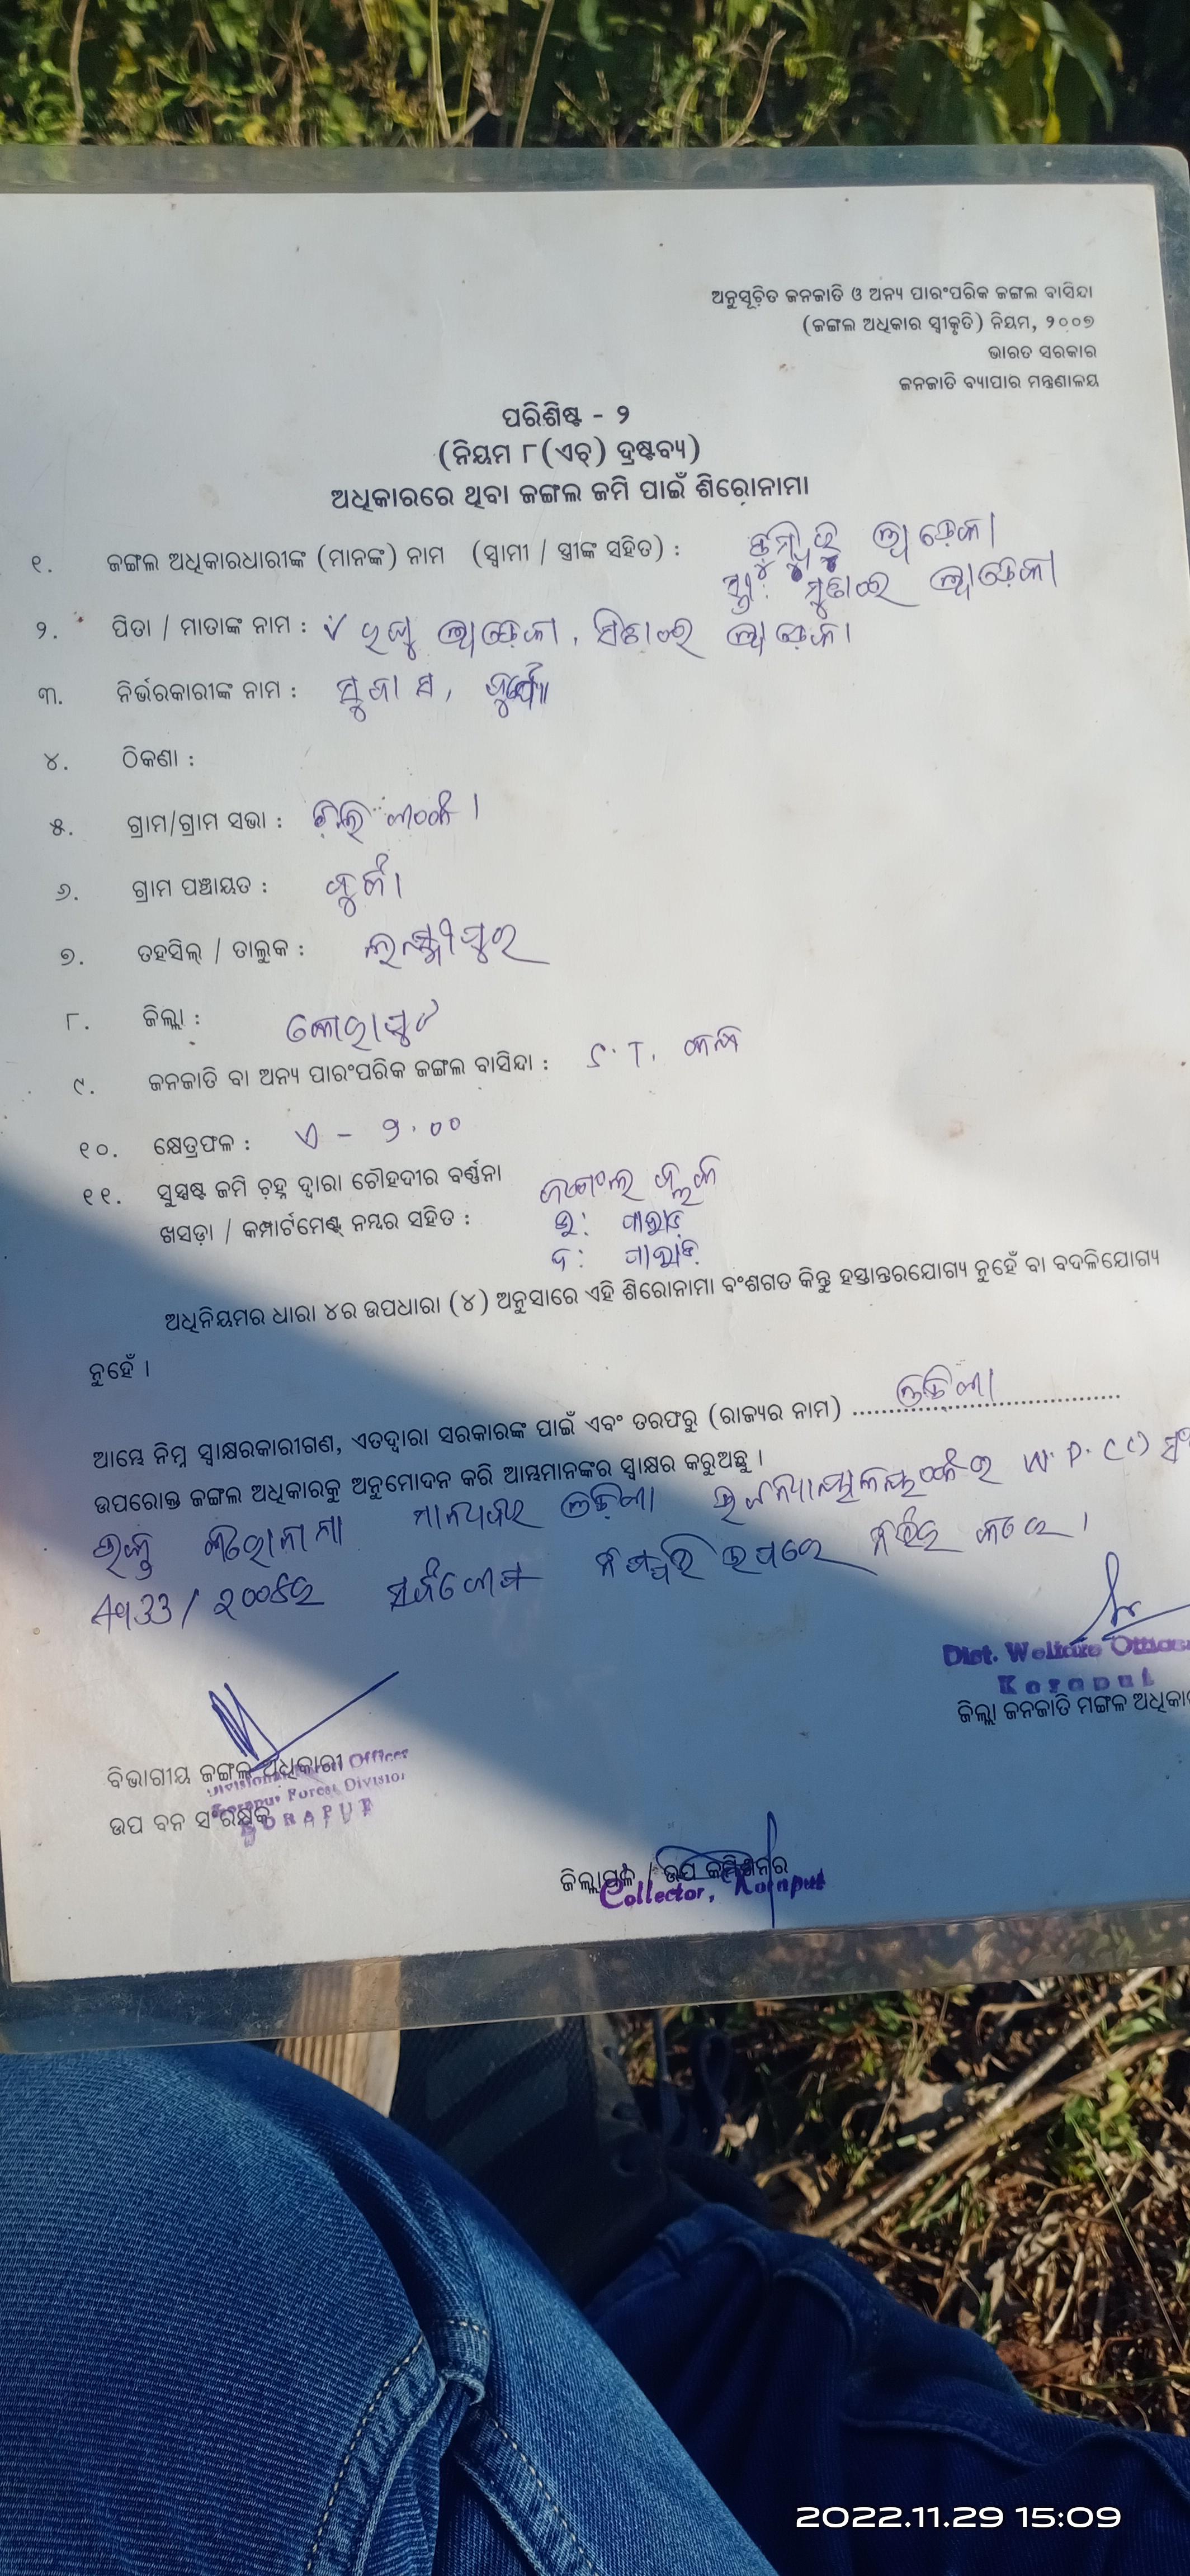 ଅନୁସୂଚିତ ଜନଜାତି ଓ ଅନ୍ୟ ପାରଂପରିକ ଜଙ୍ଗଲ ବାସିନ୍ଦା
(ଜଙ୍ଗଲ ଅଧିକାର ସ୍ୱୀକୃତି) ନିୟମ, ୨୦୦୭
ଭାରତ ସରକାର
ଜନଜାତି ବ୍ୟାପାର ମନ୍ତ୍ରଣାଳୟ
ପରିଶିଷ୍ଟ - ୨
(ନିୟମ ୮(ଏଚ୍) ଦ୍ରଷ୍ଟବ୍ୟ)
ଅଧିକାରରେ ଥିବା ଜଙ୍ଗଲ ଜମି ପାଇଁ ଶିରୋନାମା
୧. ଜଙ୍ଗଲ ଅଧିକାରଧାରୀଙ୍କ (ମାନଙ୍କ) ନାମ (ସ୍ୱାମୀ / ସ୍ତ୍ରୀଙ୍କ ସହିତ) :
୨. ପିତା / ମାତାଙ୍କ ନାମ :
୩. ନିର୍ଭରକାରୀଙ୍କ ନାମ :
୪. ଠିକଣା :
୫. ଗ୍ରାମ/ଗ୍ରାମ ସଭା :
୬. ଗ୍ରାମ ପଞ୍ଚାୟତ :
୭. ତହସିଲ୍ / ତାଲୁକ : ଲକ୍ଷ୍ମୀପୁର
୮. ଜିଲ୍ଲା : କୋରାପୁଟ
୯. ଜନଜାତି ବା ଅନ୍ୟ ପାରଂପରିକ ଜଙ୍ଗଲ ବାସିନ୍ଦା : S.T. କନ୍ଧ
୧୦. କ୍ଷେତ୍ରଫଳ : ଏ - ୨.୦୦
୧୧. ସୁସ୍ପଷ୍ଟ ଜମି ଚିହ୍ନ ଦ୍ୱାରା ଚୌହଦୀର ବର୍ଣ୍ଣନା
ଖସଡ଼ା / କମ୍ପାର୍ଟମେଣ୍ଟ୍ ନମ୍ବର ସହିତ : ଉ: ପାହାଡ଼
ଦ: ପାହାଡ଼
ଅଧିନିୟମର ଧାରା ୪ର ଉପଧାରା (୪) ଅନୁସାରେ ଏହି ଶିରୋନାମା ବଂଶଗତ କିନ୍ତୁ ହସ୍ତାନ୍ତରଯୋଗ୍ୟ ନୁହେଁ ବା ବଦଳିଯୋଗ୍ୟ
ନୁହେଁ ।
ଆମ୍ଭେ ନିମ୍ନ ସ୍ୱାକ୍ଷରକାରୀଗଣ, ଏତଦ୍ୱାରା ସରକାରଙ୍କ ପାଇଁ ଏବଂ ତରଫରୁ (ରାଜ୍ୟର ନାମ) ଓଡିଶା
ଉପରୋକ୍ତ ଜଙ୍ଗଲ ଅଧିକାରକୁ ଅନୁମୋଦନ କରି ଆମ୍ଭମାନଙ୍କର ସ୍ୱାକ୍ଷର କରୁଅଛୁ ।
ଉକ୍ତ ଶିରୋନାମା ମାନ୍ୟବର ଓଡ଼ିଶା ଉଚ୍ଚନ୍ୟାୟାଳୟଙ୍କର W.P.(C)
4933/୨୦୦୫ର ସର୍ବଶେଷ ନିଷ୍ପତ୍ତି ଉପରେ ନିର୍ଭର କରେ ।
Dist. Welfare Officer
Koraput
ଜିଲ୍ଲା ଜନଜାତି ମଙ୍ଗଳ
ବିଭାଗୀୟ ଜଙ୍ଗଲ ଅଧିକାରୀ
Divisional Forest Officer
Koraput Forest Division
ଉପ ବନ ସଂରକ୍ଷକ
KORAPUT
ଜିଲ୍ଲାପାଳ / ଉପ କମିଶନର
Collector, Koraput
2022.11.29 15:09